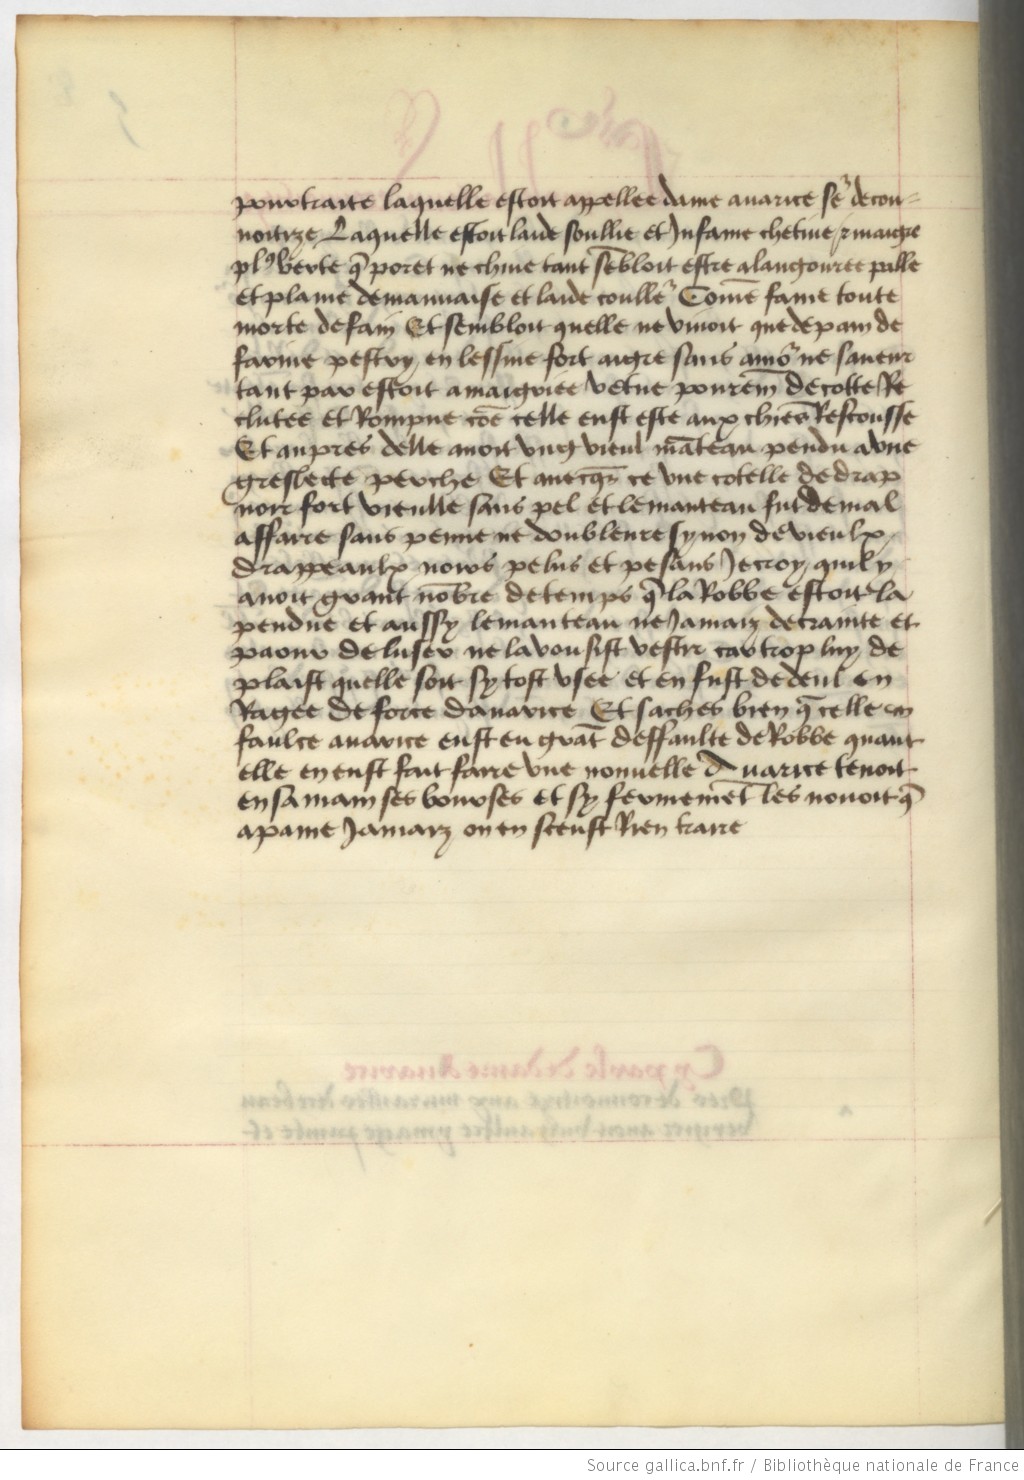 pourtraite laquelle estoit appellee dame auarice ser̃ de conu-
uoitize Laquelle estoit laide soullie et Infame chetiue ⁊ maigre
plꝰ verte q̃ poret ne chiue tant sẽbloit estre alangouree palle
et plaine de mauuaise et laide coullẽ Comẽ fame toute
morte de fain Et sembloit quelle ne viuoit que de pain de
farine pestry en lessiue fort aigre sans amõ ne saueur
tant par estoit amaigriee vetue pourem̃ de cotte Re
clutee et Rompue cõe celle eust este aux chiẽs Rescousse
Et aupres delle auoit vng vieul mãteau pendu a vne
greslecte perche Et auecq̃s ce vne cotelle de drap
noir fort vieulle sans pel et le manteau fut de mal
affaire sans penne ne doubleure synon de vieulx
drappeaulx noirs pelus et pesans Je croy quil y
auoit grant nõbre de temps q̃ la Robbe estoit la
pendue et aussy le manteau ne Jamaiz de crainte et
paour de luser ne la voulsist vestir car trop luy de
plaist quelle soit sy tost vsee et en fust de deul en
Ragee de force dauarice Et saches bien q̃ celle en
faulce auarice eust eu grãt deffaulte de Robbe quant
elle en eust fait faire vne nouuelle Auarice tenoit
en sa main ses bourses et sy fermemẽt les nouoit q̃
a paine Jamaiz on en sceust Rien traire
Source gallica.bnf.fr / Bibliothèque nationale de France